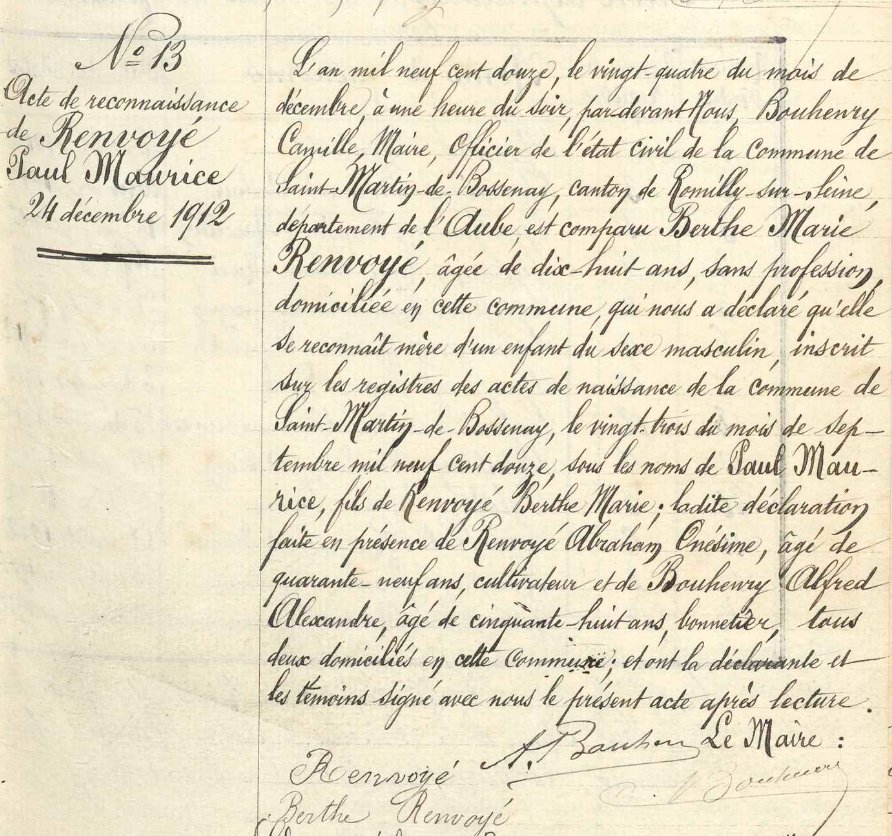 N° 13
Acte de reconnaissance
de Renvoyé
Paul Maurice
24 décembre 1912
L'an mil neuf cent douze, le vingt-quatre du mois de
décembre, à une heure du soir, par-devant Nous, Bouhenry
Camille, Maire, Officier de l'état civil de la Commune de
Saint-Martin-de-Bossenay, canton de Romilly-sur-Seine,
département de l'Aube, est comparu Berthe Marie
Renvoyé, âgée de dix-huit ans, sans profession,
domiciliée en cette commune, qui nous a déclaré qu'elle
se reconnaît mère d'un enfant du sexe masculin, inscrit
sur les registres des actes de naissance de la Commune de
Saint-Martin-de-Bossenay, le vingt-trois du mois de sep-
tembre mil neuf cent douze, sous les noms de Paul Mau-
rice, fils de Renvoyé Berthe Marie; ladite déclaration
faite en présence de Renvoyé Abraham Onésime, âgé de
quarante-neuf ans, cultivateur et de Bouhenry Alfred
Alexandre, âgé de cinquante-huit ans, bonnetier, tous
deux domiciliés en cette Commune; et ont la déclarante et
les témoins signé avec nous le présent acte après lecture.
Le Maire :
Renvoyé A.
Berthe Renvoyé